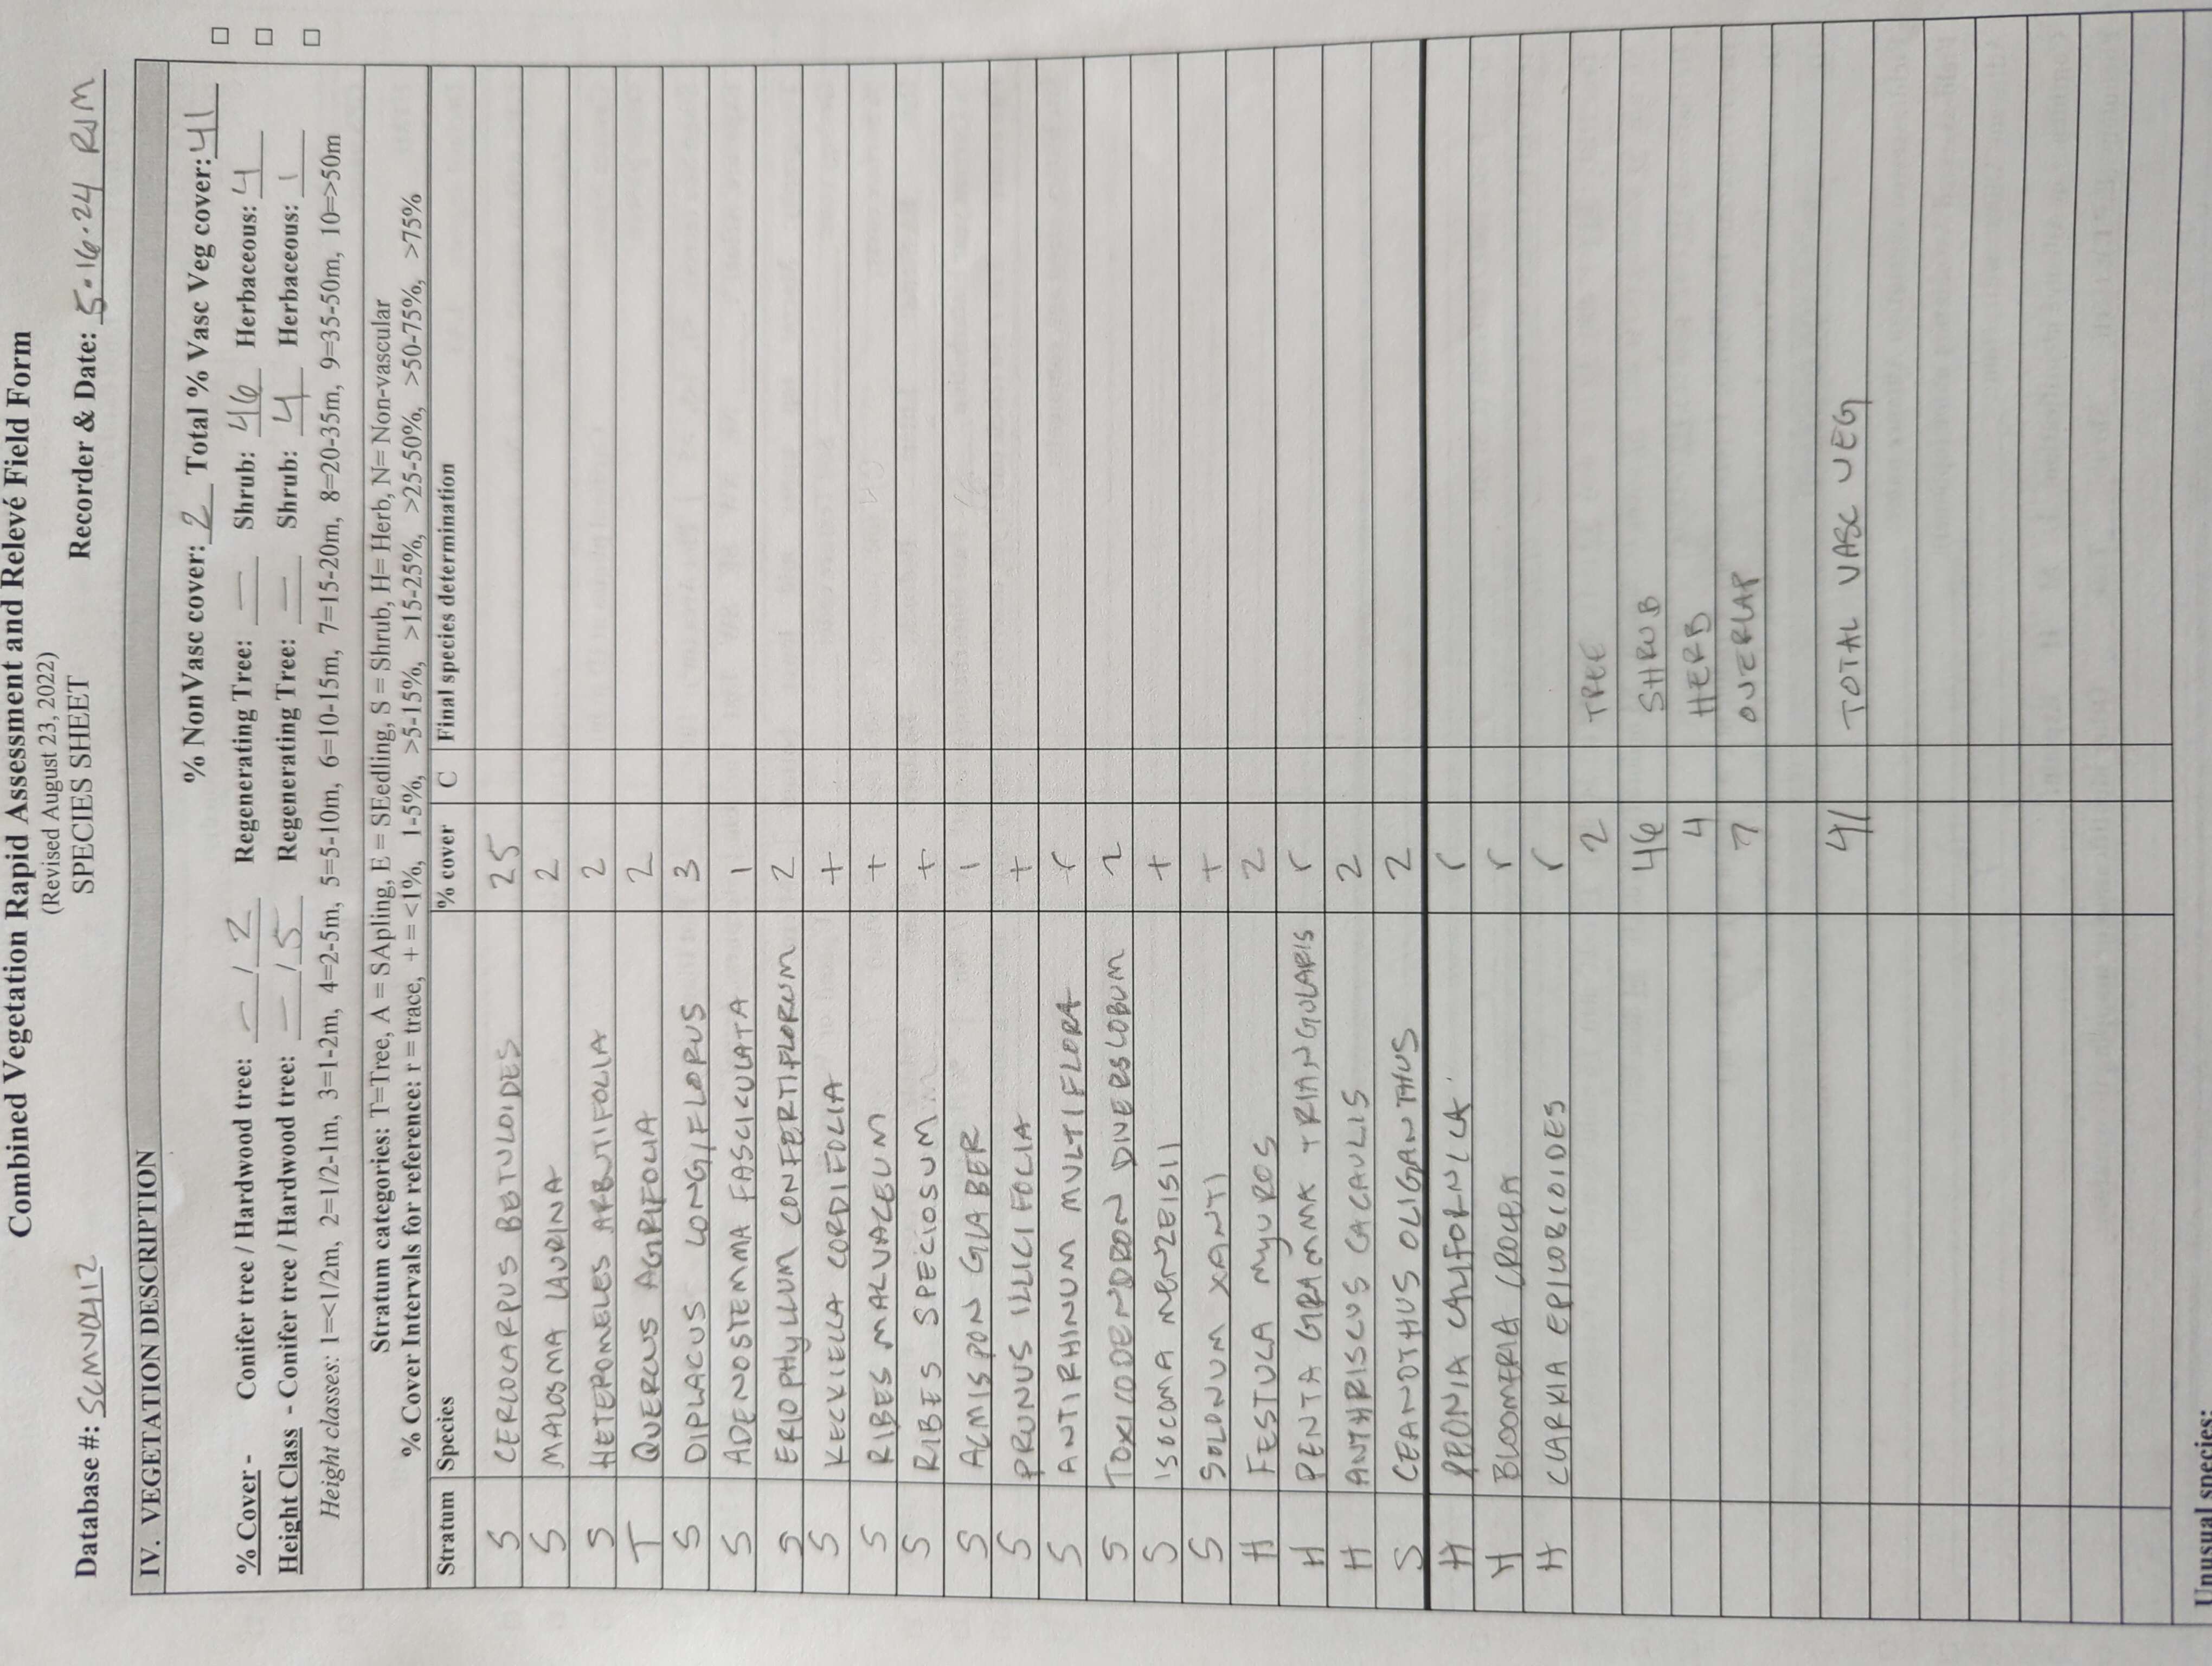 Combined Vegetation Rapid Assessment and Relevé Field Form
(Revised August 23, 2022)
SPECIES SHEET
Database #: SCMV0412 Recorder & Date: 5.16.24 RJM
IV. VEGETATION DESCRIPTION
% NonVasc cover: 2 Total % Vasc Veg cover: 41 □
% Cover - Conifer tree / Hardwood tree: – / 2 Regenerating Tree: — Shrub: 46 Herbaceous: 4 □
Height Class - Conifer tree / Hardwood tree: – / 5 Regenerating Tree: — Shrub: 4 Herbaceous: 1 □
Height classes: 1=<1/2m, 2=1/2-1m, 3=1-2m, 4=2-5m, 5=5-10m, 6=10-15m, 7=15-20m, 8=20-35m, 9=35-50m, 10=>50m
Stratum categories: T=Tree, A = SApling, E = SEedling, S = Shrub, H= Herb, N= Non-vascular
% Cover Intervals for reference: r = trace, + = <1%, 1-5%, >5-15%, >15-25%, >25-50%, >50-75%, >75%
Stratum Species % cover C Final species determination
S CERCOCARPUS BETULOIDES 25
S MALOSMA LAURINA 2
S HETEROMELES ARBUTIFOLIA 2
T QUERCUS AGRIFOLIA 2
S DIPLACUS LONGIFLORUS 3
S ADENOSTEMMA FASCICULATA 1
S ERIOPHYLLUM CONFERTIFLORUM 2
S KECKIELLA CORDIFOLIA +
S RIBES MALVACEUM +
S RIBES SPECIOSUM +
S ACMISPON GLABER 1
S PRUNUS ILLICIFOLIA +
S ANTIRHINUM MULTIFLORA r
S TOXICODENDRON DIVERSLOBUM 2
S ISOCOMA MENZEISII +
S SOLONUM XANTI +
H FESTULA MYUROS 2
H PENTA GRAMMA TRIANGULARIS r
H ANTHRISCUS CACAULIS 2
S CEANOTHUS OLIGANTHUS 2
H PEONIA CALIFORNICA r
H BLOOMERIA CROCEA r
H CLARKIA EPILOBIOIDES r
2 TREE
46 SHRUB
4 HERB
7 OVERLAP
41 TOTAL VASC VEG
Unusual species: